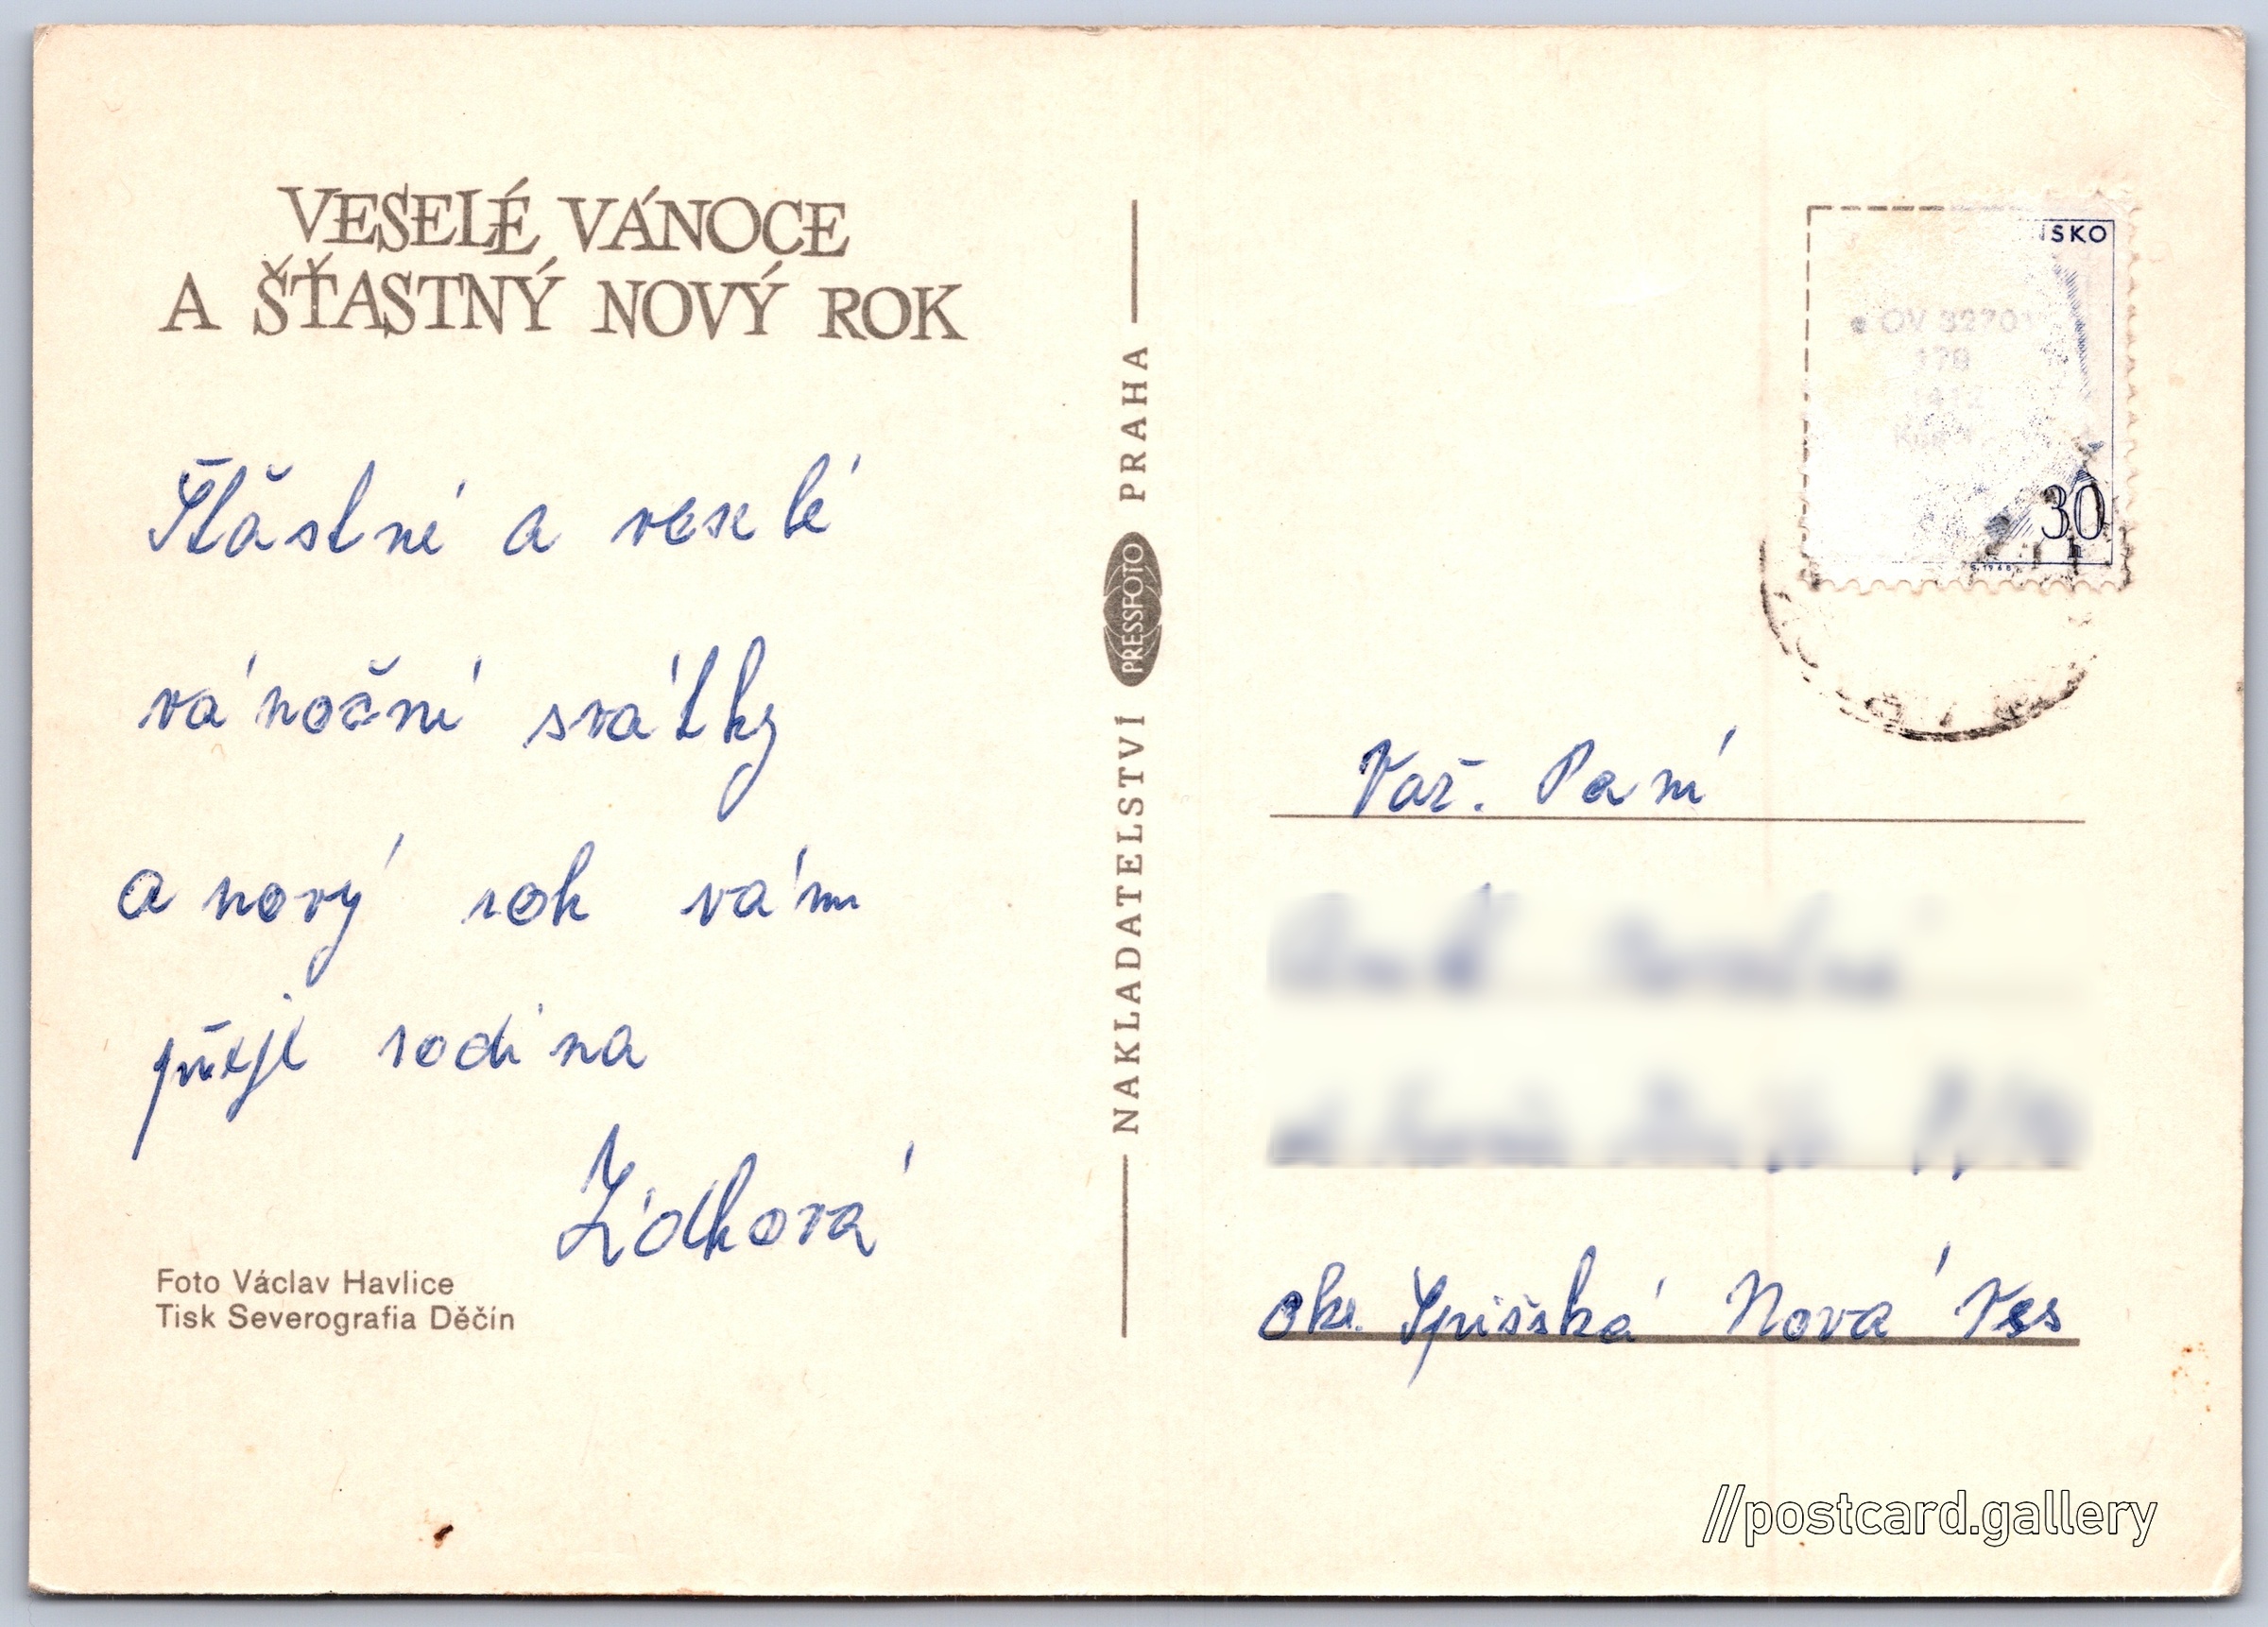 VESELÉ VÁNOCE
A ŠŤASTNÝ NOVÝ ROK
Šťástné a veselé
vánoční svátky
a nový rok vám
přeje rodina
Židková
Foto Václav Havlice
Tisk Severografia Děčín
NAKLADATELSTVÍ PRESSFOTO PRAHA
NSKO
30
Važ. Paní
okr. Spišská Nová Ves
//postcard.gallery